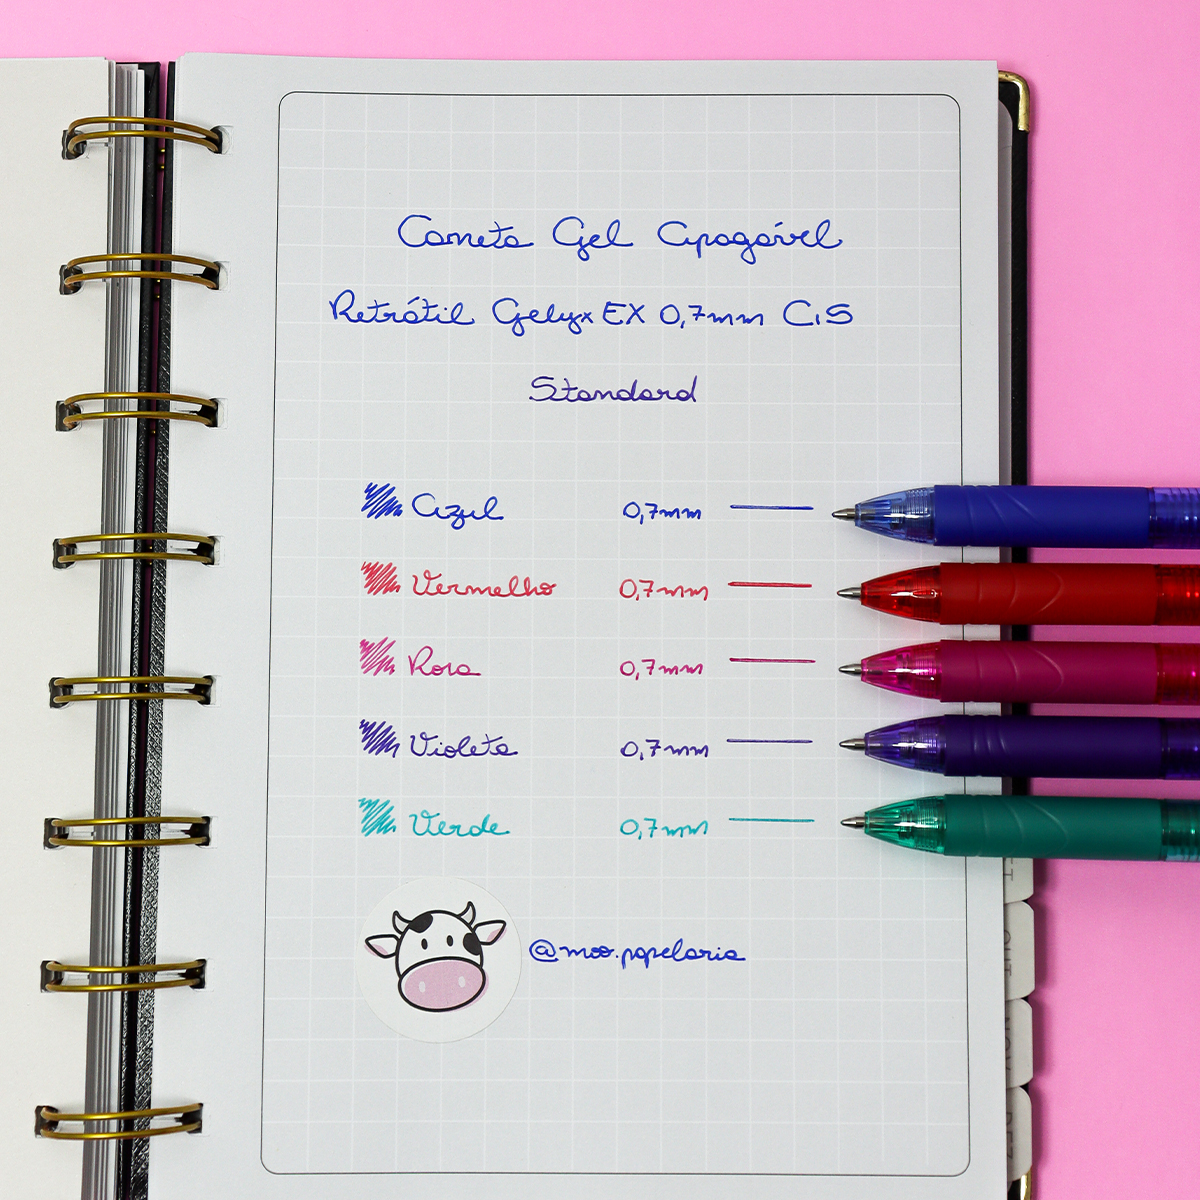 Caneta Gel Apagável
Retrátil Gelyx EX 0,7mm CiS
Standard
Azul 0,7mm
Vermelho 0,7mm
Rosa 0,7mm
Violeta 0,7mm
Verde 0,7mm
@moo.papelaria
SET
OUT
NOV
DEZ